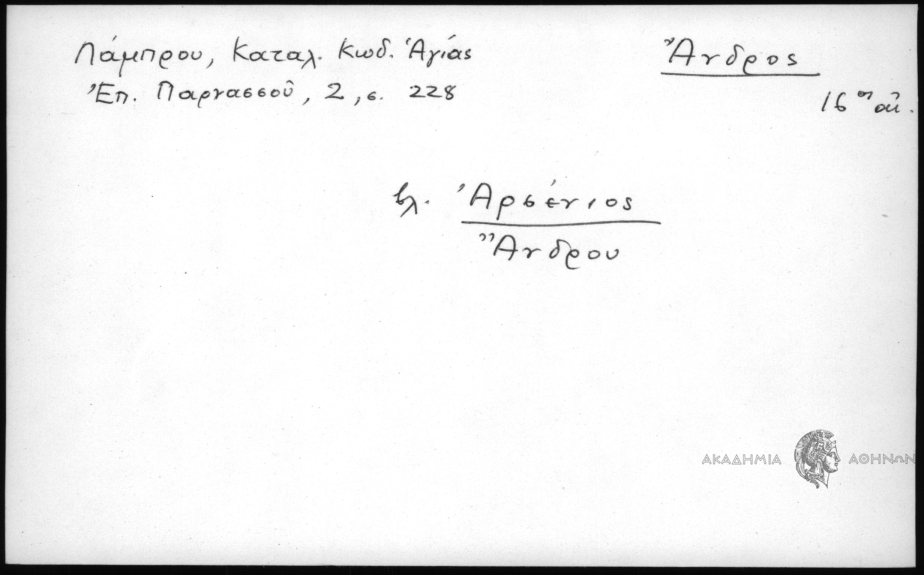 Λάμπρου, Καταλ. Κωδ. Ἁγίας
Ἐπ. Παρνασσοῦ, 2, σ. 228
Ἄνδρος
16 ον αἰ.
βλ. Ἀρσένιος
Ἄνδρου
ΑΚΑΔΗΜΙΑ ΑΘΗΝΩΝ